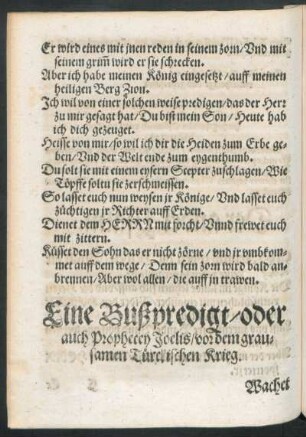 Er wird eines mit jnen reden in seinem zorn/Vnd mit
seinem grim̃ wird er sie schrecken.
Aber ich habe meinen König eingesetzt/auff meinen
heiligen Berg Zion.
Ich wil von einer solchen weise predigen/das der Herr
zu mir gesagt hat/Du bist mein Son/Heute hab
ich dich gezeuget.
Heische von mir/so wil ich dir die Heiden zum Erbe ge-
ben/Vnd der Welt ende zum eygenthumb.
Du solt sie mit einem eysern Scepter zuschlagen/Wie
Töpffe soltu sie zerschmeissen.
So lasset euch nun weysen jr Könige/Vnd lasset euch
züchtigen jr Richter auff Erden.
Dienet dem HERRN mit forcht/Vnnd frewet euch
mit zittern.
Küsset den Sohn das er nicht zörne/vnd jr vmbkom-
met auff dem wege/Denn sein zorn wird bald an-
brennen/Aber wol allen/die auff jn trawen.
Eine Bußpredigt/oder
auch Prophecey Joelis/vor dem grau-
samen Türckischen Krieg.
Wachet